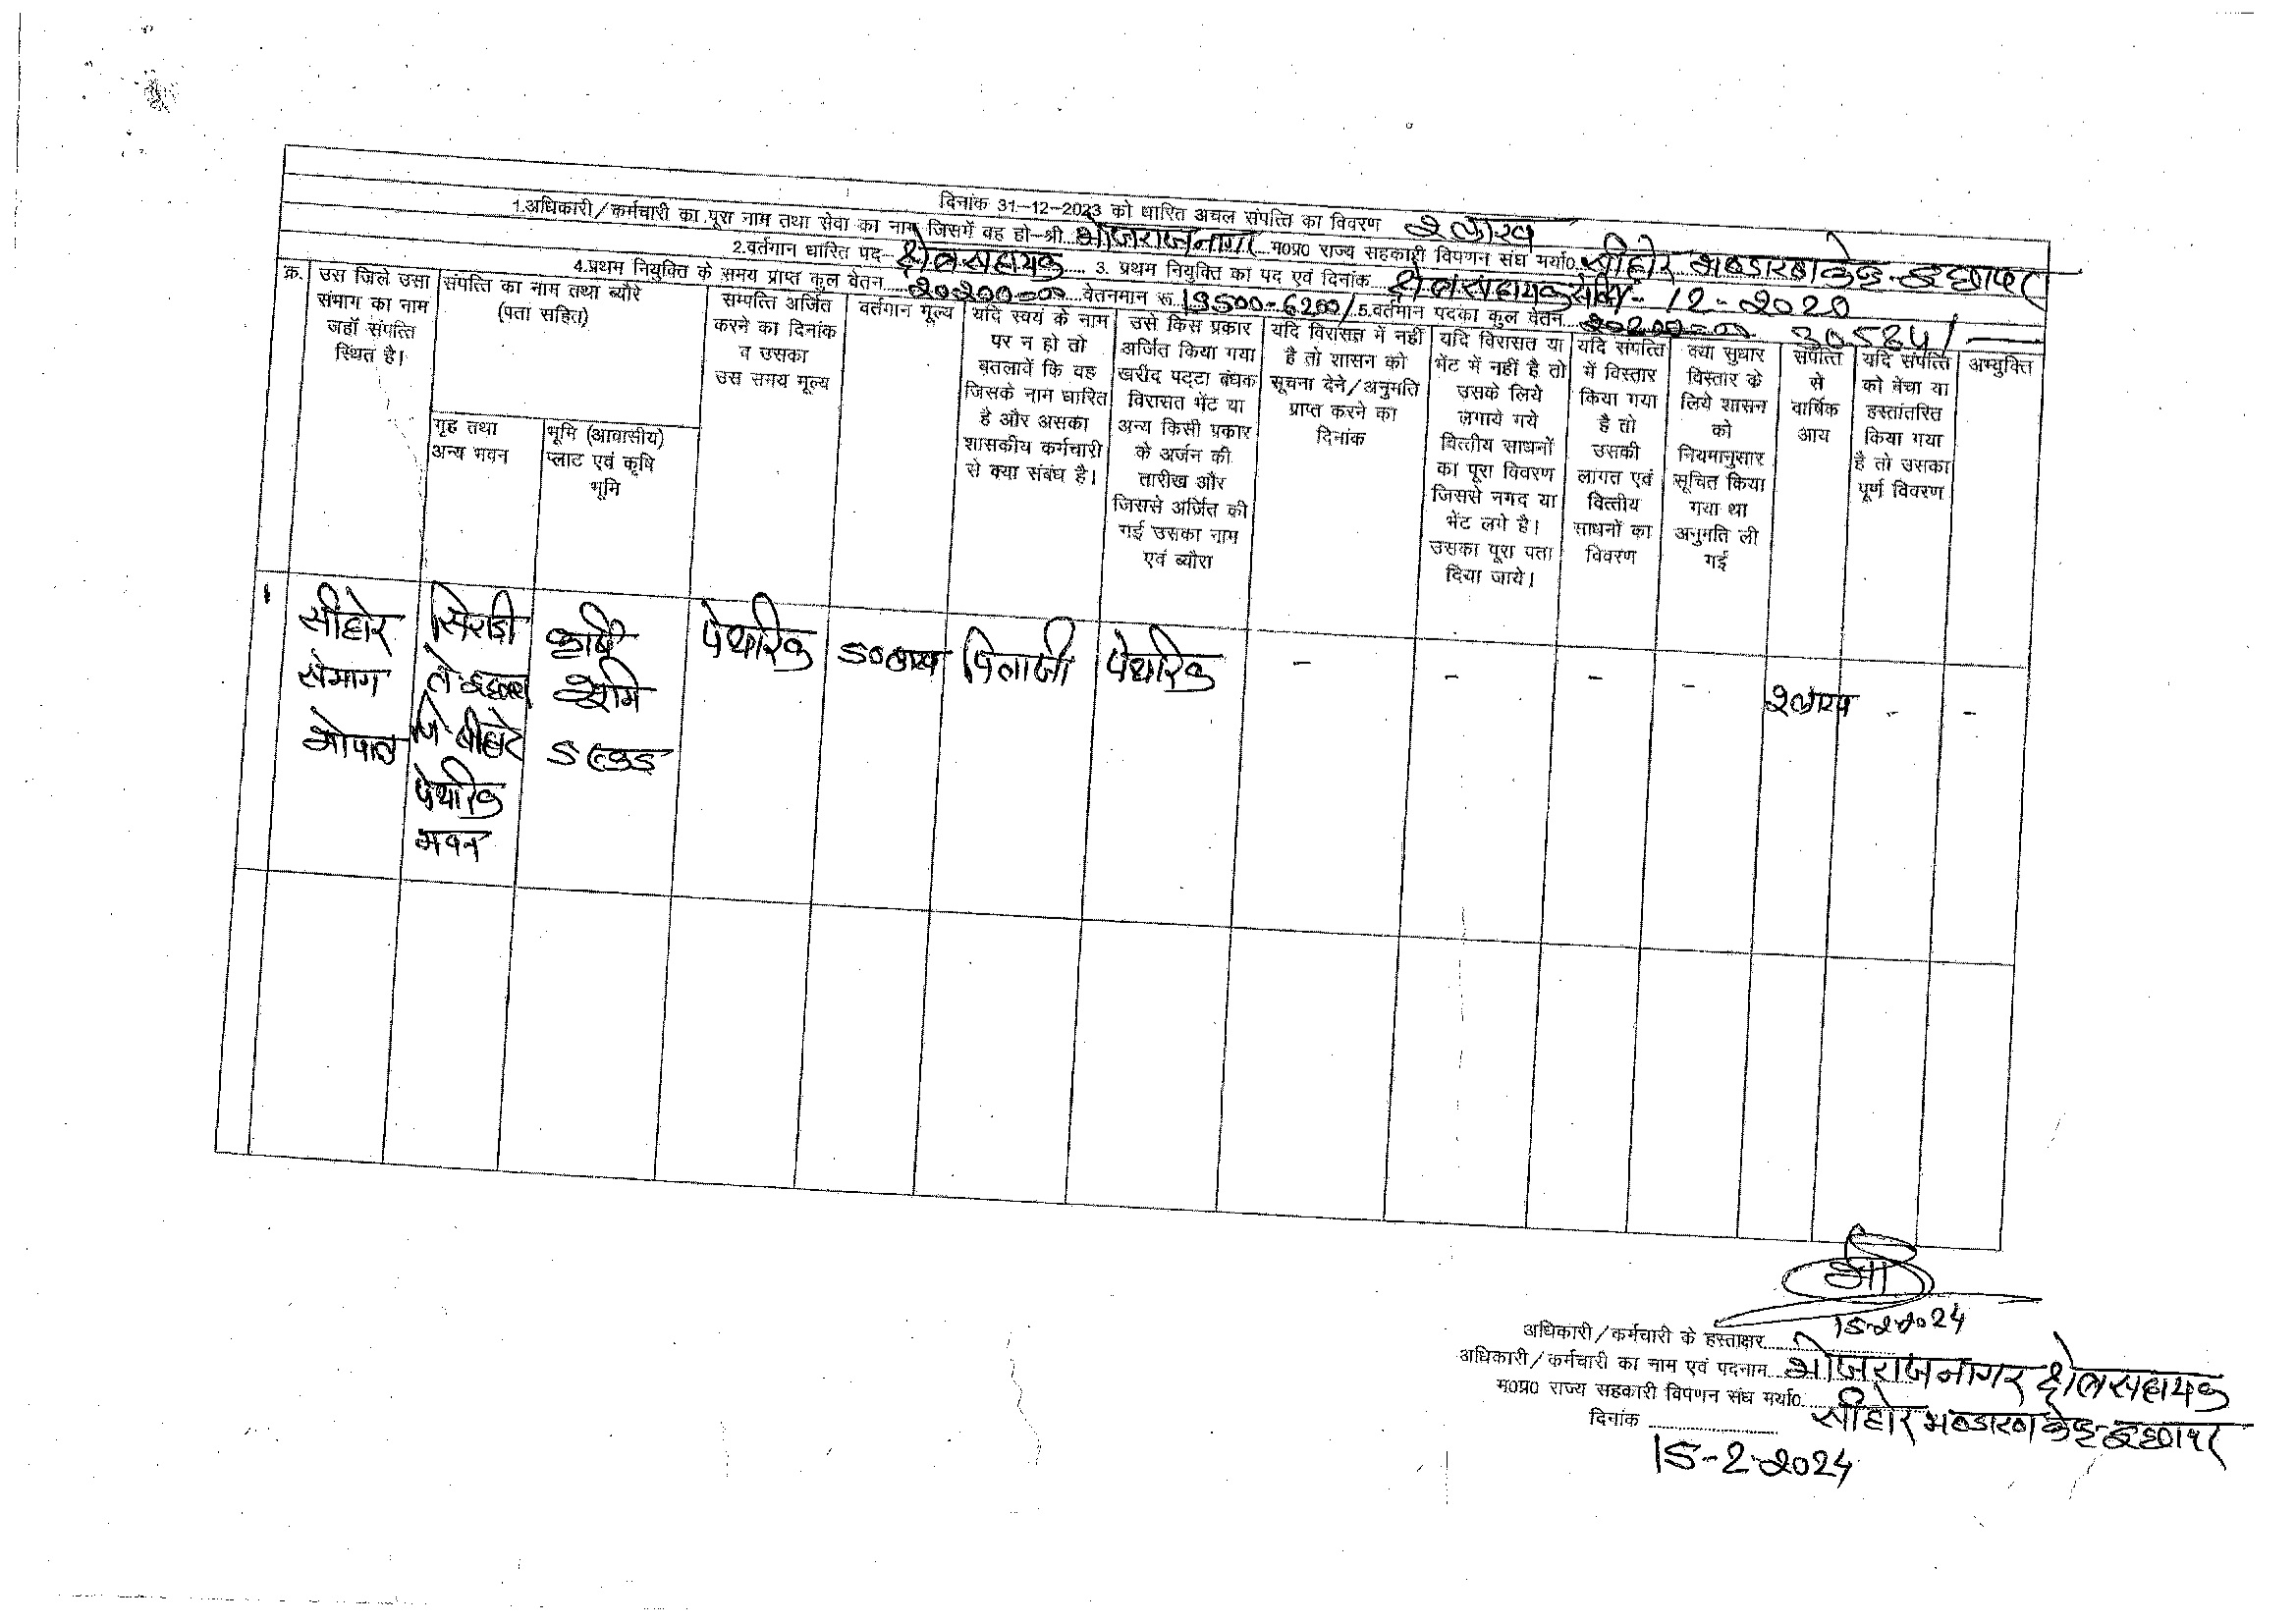 दिनांक 31-12-2023 को धारित अचल संपत्ति का विवरण 2 लाख
1.अधिकारी/कर्मचारी का पूरा नाम तथा सेवा का नाम जिसमें वह हो-श्री भोजराज नागर म०प्र० राज्य सहकारी विपणन संघ मर्या० सीहोर भण्डारण केन्द्र-इछावर
2.वर्तमान धारित पद- क्षेत्र सहायक 3. प्रथम नियुक्ति का पद एवं दिनांक क्षेत्र सहायक -12-2020
4.प्रथम नियुक्ति के समय प्राप्त कुल वेतन 20200=00 वेतनमान रू. 19500-6200/ 5.वर्तमान पदका कुल वेतन 20200=00 30584/
क्र.
उस जिले उसा संभाग का नाम जहाँ संपत्ति स्थित है।
संपत्ति का नाम तथा ब्यौरे (पता सहित)
गृह तथा अन्य भवन
भूमि (आवासीय) प्लाट एवं कृषि भूमि
सम्पत्ति अर्जित करने का दिनांक व उसका उस समय मूल्य
वर्तमान मूल्य
यदि स्वयं के नाम पर न हो तो बतलावें कि वह जिसके नाम धारित है और असका शासकीय कर्मचारी से क्या संबंध है।
उसे किस प्रकार अर्जित किया गया खरीद पट्टा बंधक विरासत भेंट या अन्य किसी प्रकार के अर्जन की तारीख और जिससे अर्जित की गई उसका नाम एवं ब्यौरा
यदि विरासत में नहीं है तो शासन को सूचना देने/अनुमति प्राप्त करने का दिनांक
यदि विरासत या भेंट में नहीं है तो उसके लिये लगाये गये वित्तीय साधनों का पूरा विवरण जिससे नगद या भेंट लगे है। उसका पूरा पता दिया जाये।
यदि संपत्ति में विस्तार किया गया है तो उसकी लागत एवं वित्तीय साधनों का विवरण
क्या सुधार विस्तार के लिये शासन को नियमानुसार सूचित किया गया था अनुमति ली गई
संपत्ति से वार्षिक आय
यदि संपत्ति को बेंचा या हस्तांतरित किया गया है तो उसका पूर्ण विवरण
अभ्युक्ति
1
सीहोर
संभाग
भोपाल
सिराडी
ते इछावर
जि-सीहोर
पेथारिक
भवन
कृषि
भूमि
5 एकड
पेथारिक
50 लाख
पिताजी
पेथारिक
-
-
-
-
2 लाख
-
-
15-2-2024
अधिकारी/कर्मचारी के हस्ताक्षर
अधिकारी/कर्मचारी का नाम एवं पदनाम भोजराज नागर क्षेत्र सहायक
म०प्र० राज्य सहकारी विपणन संघ मर्या० सीहोर भण्डारण केन्द्र-इछावर
दिनांक
15-2-2024